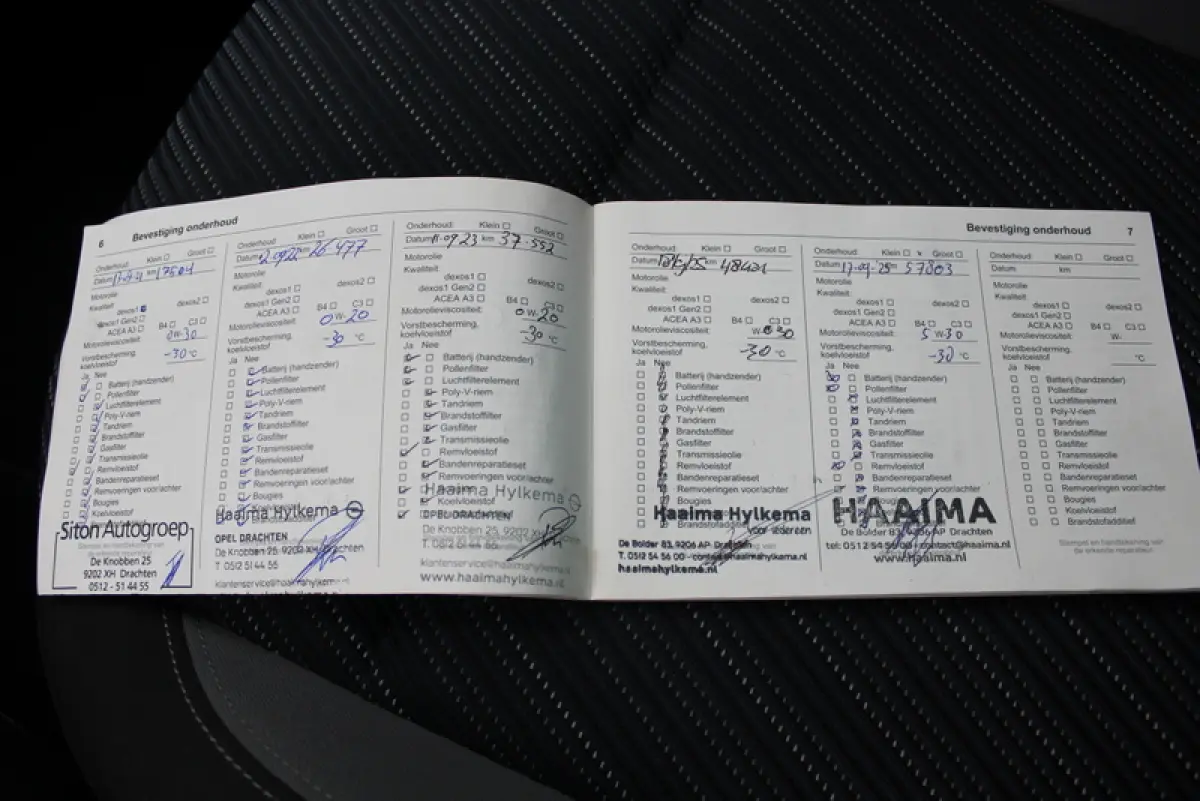 6
Bevestiging onderhoud
Onderhoud: Klein Groot
Datum km 17504
Motorolie
Kwaliteit:
dexos1 dexos2
dexos1 Gen2
ACEA A3 B4 C3
Motorolieviscositeit: 0W-30
Vorstbescherming,
koelvloeistof -30 °C
Ja Nee
Batterij (handzender)
Pollenfilter
Luchtfilterelement
Poly-V-riem
Tandriem
Brandstoffilter
Gasfilter
Transmissieolie
Remvloeistof
Bandenreparatieset
Remvoeringen voor/achter
Bougies
Koelvloeistof
Siton Autogroep
De Knobben 25
9202 XH Drachten
0512 - 51 44 55
Onderhoud: Klein Groot
Datum km 26477
Motorolie
Kwaliteit:
dexos1 dexos2
dexos1 Gen2
ACEA A3 B4 C3
Motorolieviscositeit: 0W-20
Vorstbescherming,
koelvloeistof -30 °C
Ja Nee
Batterij (handzender)
Pollenfilter
Luchtfilterelement
Poly-V-riem
Tandriem
Brandstoffilter
Gasfilter
Transmissieolie
Remvloeistof
Bandenreparatieset
Remvoeringen voor/achter
Bougies
Haaima Hylkema
OPEL DRACHTEN
De Knobben 25, 9202 XH Drachten
T. 0512 51 44 55
klantenservice@haaimahylkema.nl
Onderhoud: Klein Groot
Datum 11-09 23 km 37-552
Motorolie
Kwaliteit:
dexos1 dexos2
dexos1 Gen2
ACEA A3 B4 C3
Motorolieviscositeit: 0W-20
Vorstbescherming,
koelvloeistof -30 °C
Ja Nee
Batterij (handzender)
Pollenfilter
Luchtfilterelement
Poly-V-riem
Tandriem
Brandstoffilter
Gasfilter
Transmissieolie
Remvloeistof
Bandenreparatieset
Remvoeringen voor/achter
Haaima Hylkema
Koelvloeistof
OPEL DRACHTEN
De Knobben 25, 9202 XH
T. 0512 51 44 55
klantenservice@haaimahylkema.nl
www.haaimahylkema.nl
Bevestiging onderhoud 7
Onderhoud: Klein Groot
Datum km
Motorolie
Kwaliteit:
dexos1 dexos2
dexos1 Gen2
ACEA A3 B4 C3
Motorolieviscositeit: W- 30
Vorstbescherming,
koelvloeistof -30 °C
Ja Nee
Batterij (handzender)
Pollenfilter
Luchtfilterelement
Poly-V-riem
Tandriem
Brandstoffilter
Gasfilter
Transmissieolie
Remvloeistof
Bandenreparatieset
Remvoeringen voor/achter
Bougies
Haaima Hylkema
voor iedereen
Brandstofadditief
De Bolder 83, 9206 AP Drachten
T. 0512 54 56 00 - contact@haaimahylkema.nl
haaimahylkema.nl
Onderhoud: Klein Groot
Datum 17-09-25 km 57803
Motorolie
Kwaliteit:
dexos1 dexos2
dexos1 Gen2
ACEA A3 B4 C3
Motorolieviscositeit: 5 W-30
Vorstbescherming,
koelvloeistof -30 °C
Ja Nee
Batterij (handzender)
Pollenfilter
Luchtfilterelement
Poly-V-riem
Tandriem
Brandstoffilter
Gasfilter
Transmissieolie
Remvloeistof
Bandenreparatieset
Remvoeringen voor/achter
HAAIMA
De Bolder 83, 9206 AP Drachten
tel: 0512 54 56 00 - contact@haaima.nl
www.haaima.nl
Onderhoud: Klein Groot
Datum km
Motorolie
Kwaliteit:
dexos1 dexos2
dexos1 Gen2
ACEA A3 B4 C3
Motorolieviscositeit: W-
Vorstbescherming,
koelvloeistof °C
Ja Nee
Batterij (handzender)
Pollenfilter
Luchtfilterelement
Poly-V-riem
Tandriem
Brandstoffilter
Gasfilter
Transmissieolie
Remvloeistof
Bandenreparatieset
Remvoeringen voor/achter
Bougies
Koelvloeistof
Brandstofadditief
Stempel en handtekening van
de erkende reparateur